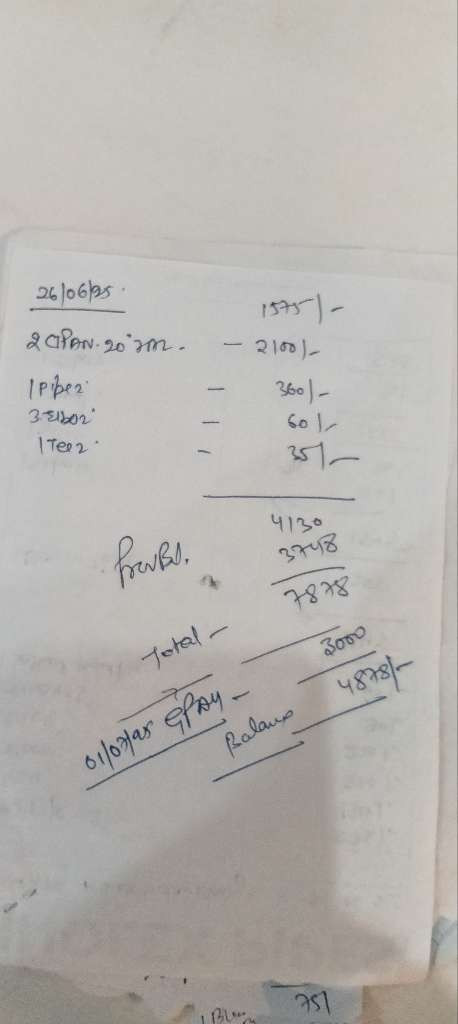 26/06/25
1575/-
2 CPAN. 20 - 2100/-
1 Piper - 360/-
3 Elbor - 60/-
1 Teer - 35/-
4130
Prev Bl. 3748
7878
Total -
01/07/25 GPAY - 3000
Balance 4878/-
751